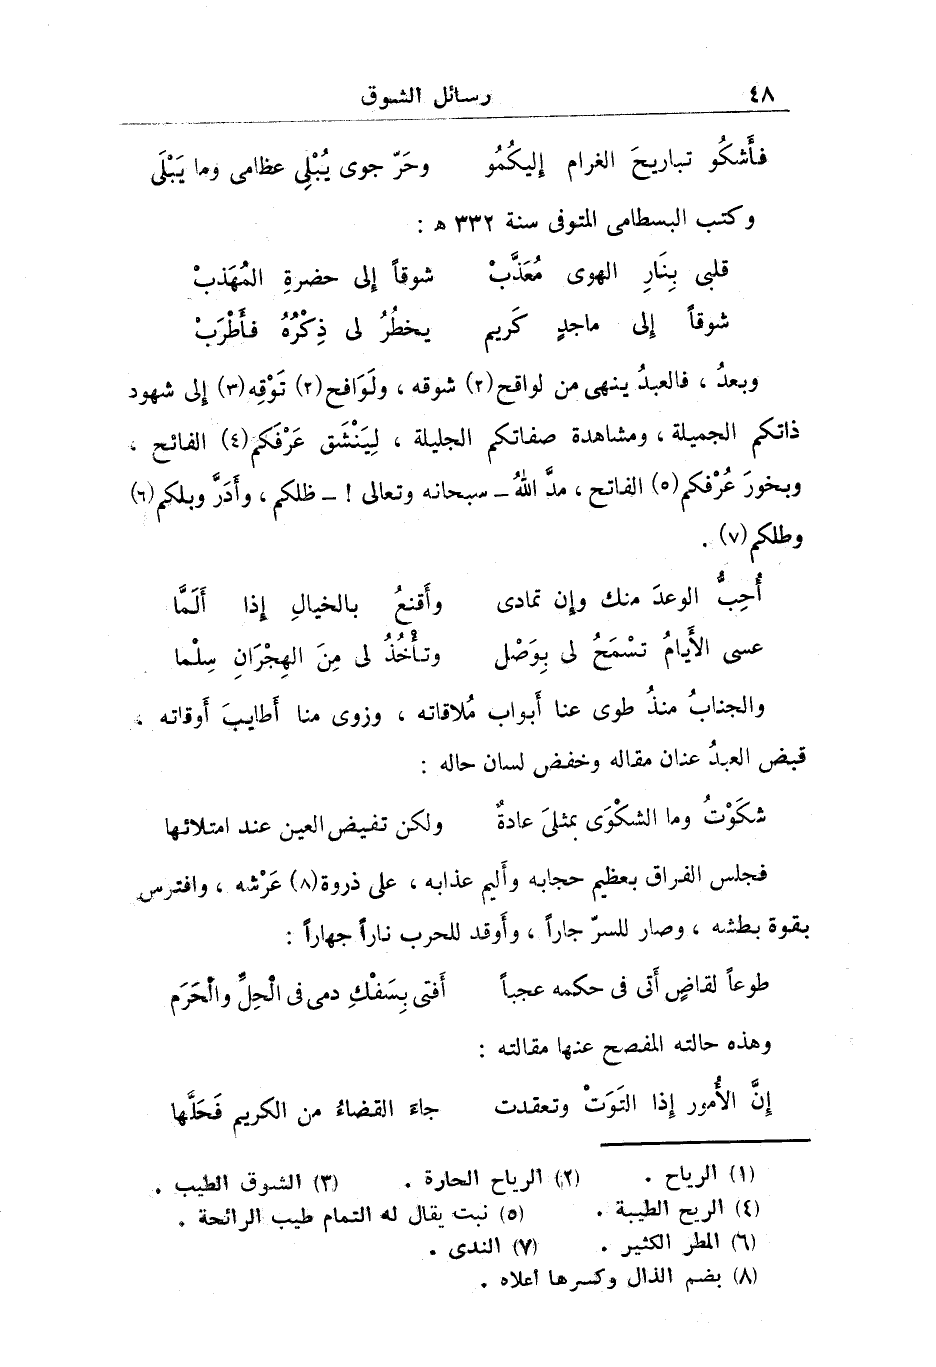 ٤٨ رسائل الشوق
فأَشكُو تباريحَ الغرام إليكُمُو وحَرّ جوى يُبْلِى عظامى وما يَبْلَى
وكتب البسطامى المتوفى سنة ٣٣٢ ھ :
قلبى بِنَارِ الهوى مُعَذَّبْ شوقاً إلى حضرةِ المُهَذبْ
شوقاً إلى ماجدٍ كَريم يخطُرُ لى ذِكْرُهُ فأَطْرَبْ
وبعدُ ، فالعبدُ ينهى من لواقح(٢) شوقه ، ولَوَافح(٢) تَوْقِه(٣) إلى شهود
ذاتكم الجميلة ، ومشاهدة صفاتكم الجليلة ، لِيَنْشَق عَرْفَكم(٤) الفائح ،
وبخورَ عُرْفكم(٥) الفاتح ، مدَّ اللهُ ــ سبحانه وتعالى ! ــ ظلكم ، وأَدَرَّ وبلكم(٦)
وطلكم(٧) .
أُحِبُّ الوعدَ منك وإن تمادى وأَقنعُ بالخيالِ إذا أَلَمَّا
عسى الأَيامُ تسْمَحُ لى بِوَصْل وتأْخُذُ لى مِنَ الهِجْرَانِ سِلْما
والجنابُ منذُ طوى عنا أبواب مُلاقاته ، وزوى منا أطايبَ أوقاته ،
قبض العبدُ عنان مقاله وخفض لسان حاله :
شكَوْتُ وما الشكْوَى بمثلىَ عادةٌ ولكن تفيض العين عند امتلائها
فجلس الفراق بعظيم حجابه وأليم عذابه ، على ذروة(٨) عَرْشه ، وافترس
بقوة بطشه ، وصار للسرّ جاراً ، وأوقد للحرب ناراً جهاراً :
طوعاً لقاضٍ أتى فى حكمه عجباً أفتى بِسَفْكِ دمى فى الْحِلِّ والْحَرَم
وهذه حالته المفصح عنها مقالته :
إنَّ الأُمور إذا التَوَتْ وتعقدت جاءَ القضاءُ من الكريم فَحَلَّها
(١) الرياح . (٢) الرياح الحارة . (٣) الشوق الطيب .
(٤) الريح الطيبة . (٥) نبت يقال له التمام طيب الرائحة .
(٦) المطر الكثير . (٧) الندى .
(٨) بضم الذال وكسرها أعلاه .